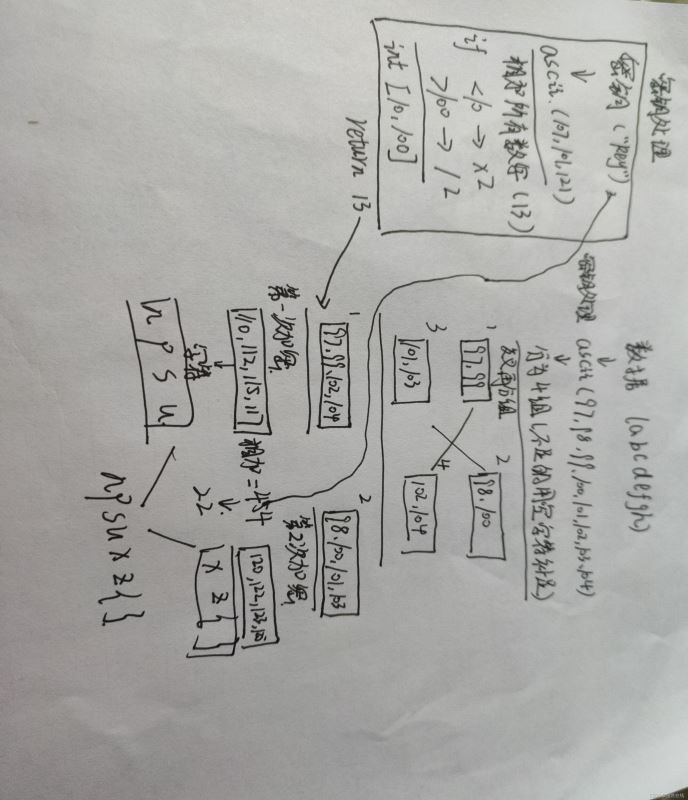 密钥处理
密钥("key")
↓
ascii.(107,101,121)
相加所有数字(13)
if <10 → x2
>100 → /2
int [10,100]
return 13
数据 (abcdefgh)
↓
密钥处理 ascii(97,98,99,100,101,102,103,104)
↓
分为4组(不足的用空字符补足)
交叉再分组
1
97.99
2
98.100
3
101,103
4
102,104
1
97.99.102,104
第一次加密
110,112,115,117
相加=454
↓
22
字符
n p s u
2
98.100,101,103
第2次加密
120,122,123,125
x z { }
npsuxz{}